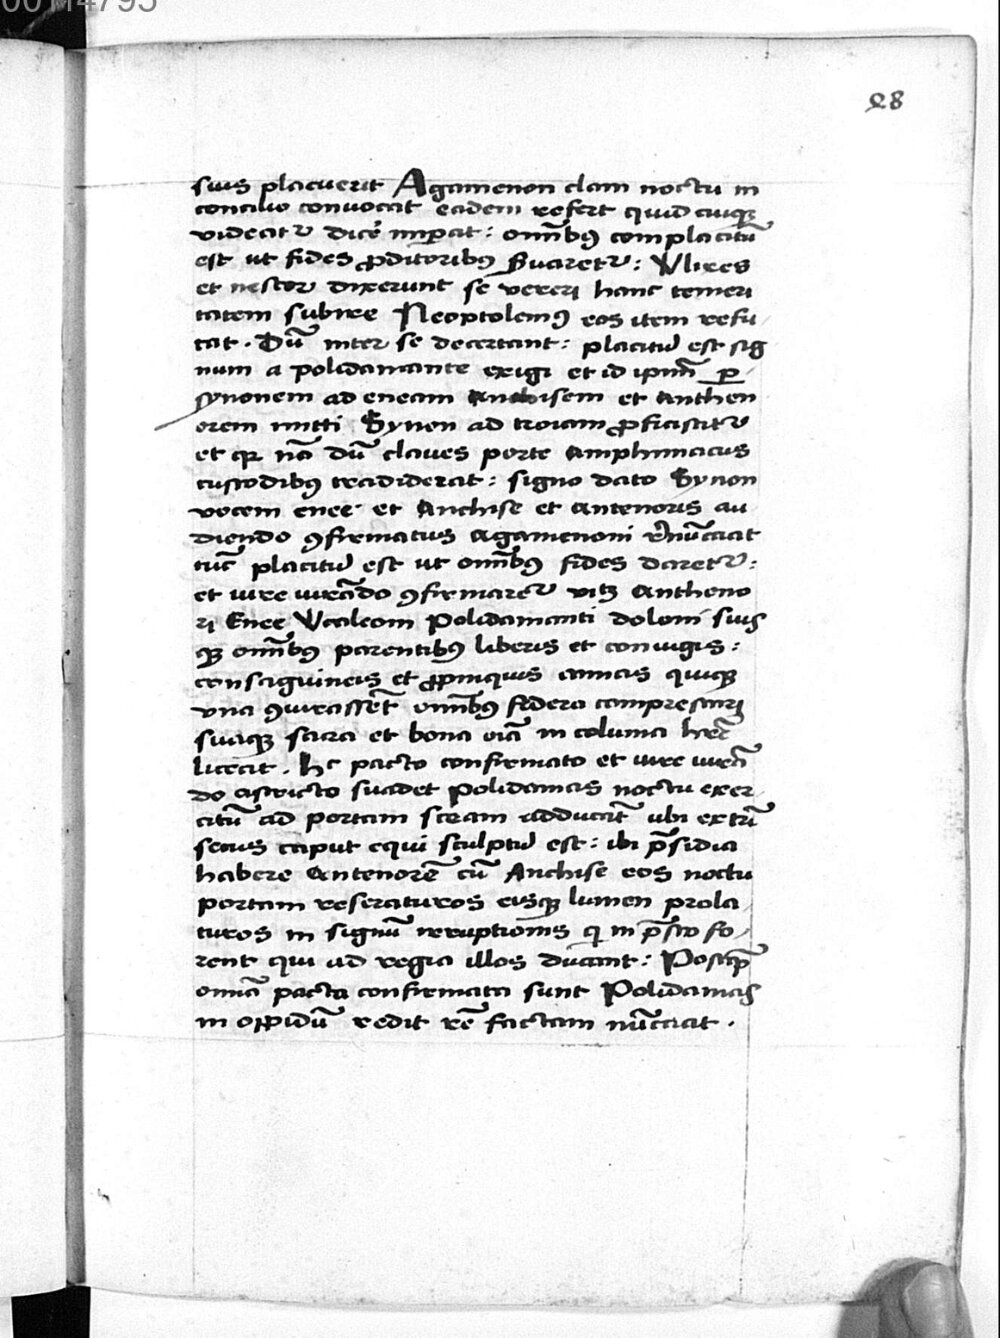 00114795
28
suis placuerit Agamenon clam noctu in
concilio convocat eadem refert quid cuiqꝫ
videatᷣ dic̄e imꝑat : om̄ibꝰ complacitū
est ut fides ꝓditoribꝰ s̄varetᷣ : Ulixes
et nestor dixerunt se vereri hanc temeri
tatem subire Neoptolemꝰ eos item refu
tat . Dū inter se decertant : placitū est sig
num a polidamante exigi et id ipm̄ ꝑ
synonem ad eneam Anchisem et Anthen
orem mitti Synon ad troiam ꝓficiscitᷣ
et qꝛ nō dū claves porte Amphimacus
custodibꝰ tradiderat : signo dato Synon
vocem enee et Anchise et antenoris au
diendo ꝯfirmatus Agamenoni r̄nūciat
tūc placitū est ut om̄ibꝰ fides daretᷣ :
et iure iurādo ꝯfirmaretᷣ utꝫ Antheno
ri Enee Ucalcom Polidamanti doloni suis
qꝫ om̄ibꝰ parentibꝰ liberis et coniugis :
consaguineis et ꝓpinquis amicis quiqꝫ
una ꝯiurassēt om̄ibꝰ federa comprestari
suaqꝫ sacra et bona oīa in columia hr̄e
liceat . hᶜ pacto confirmato et iure iurā
do astricto suadet polidamas noctu exer
citū ad portam sceam adducāt ubi extrī
secus caput equi sculptū est : ibi p̄sidia
habere Antenorē cū Anchise eos noctu
portam reseraturos eisqꝫ lumen prola
turos in signū irruptionis qi in p̄sto fo
rent qui ad regia illos ducant : Postqꝫ̄
omīa pacta confirmata sunt Polidamas
in oppidū redit rē factam nūciat .